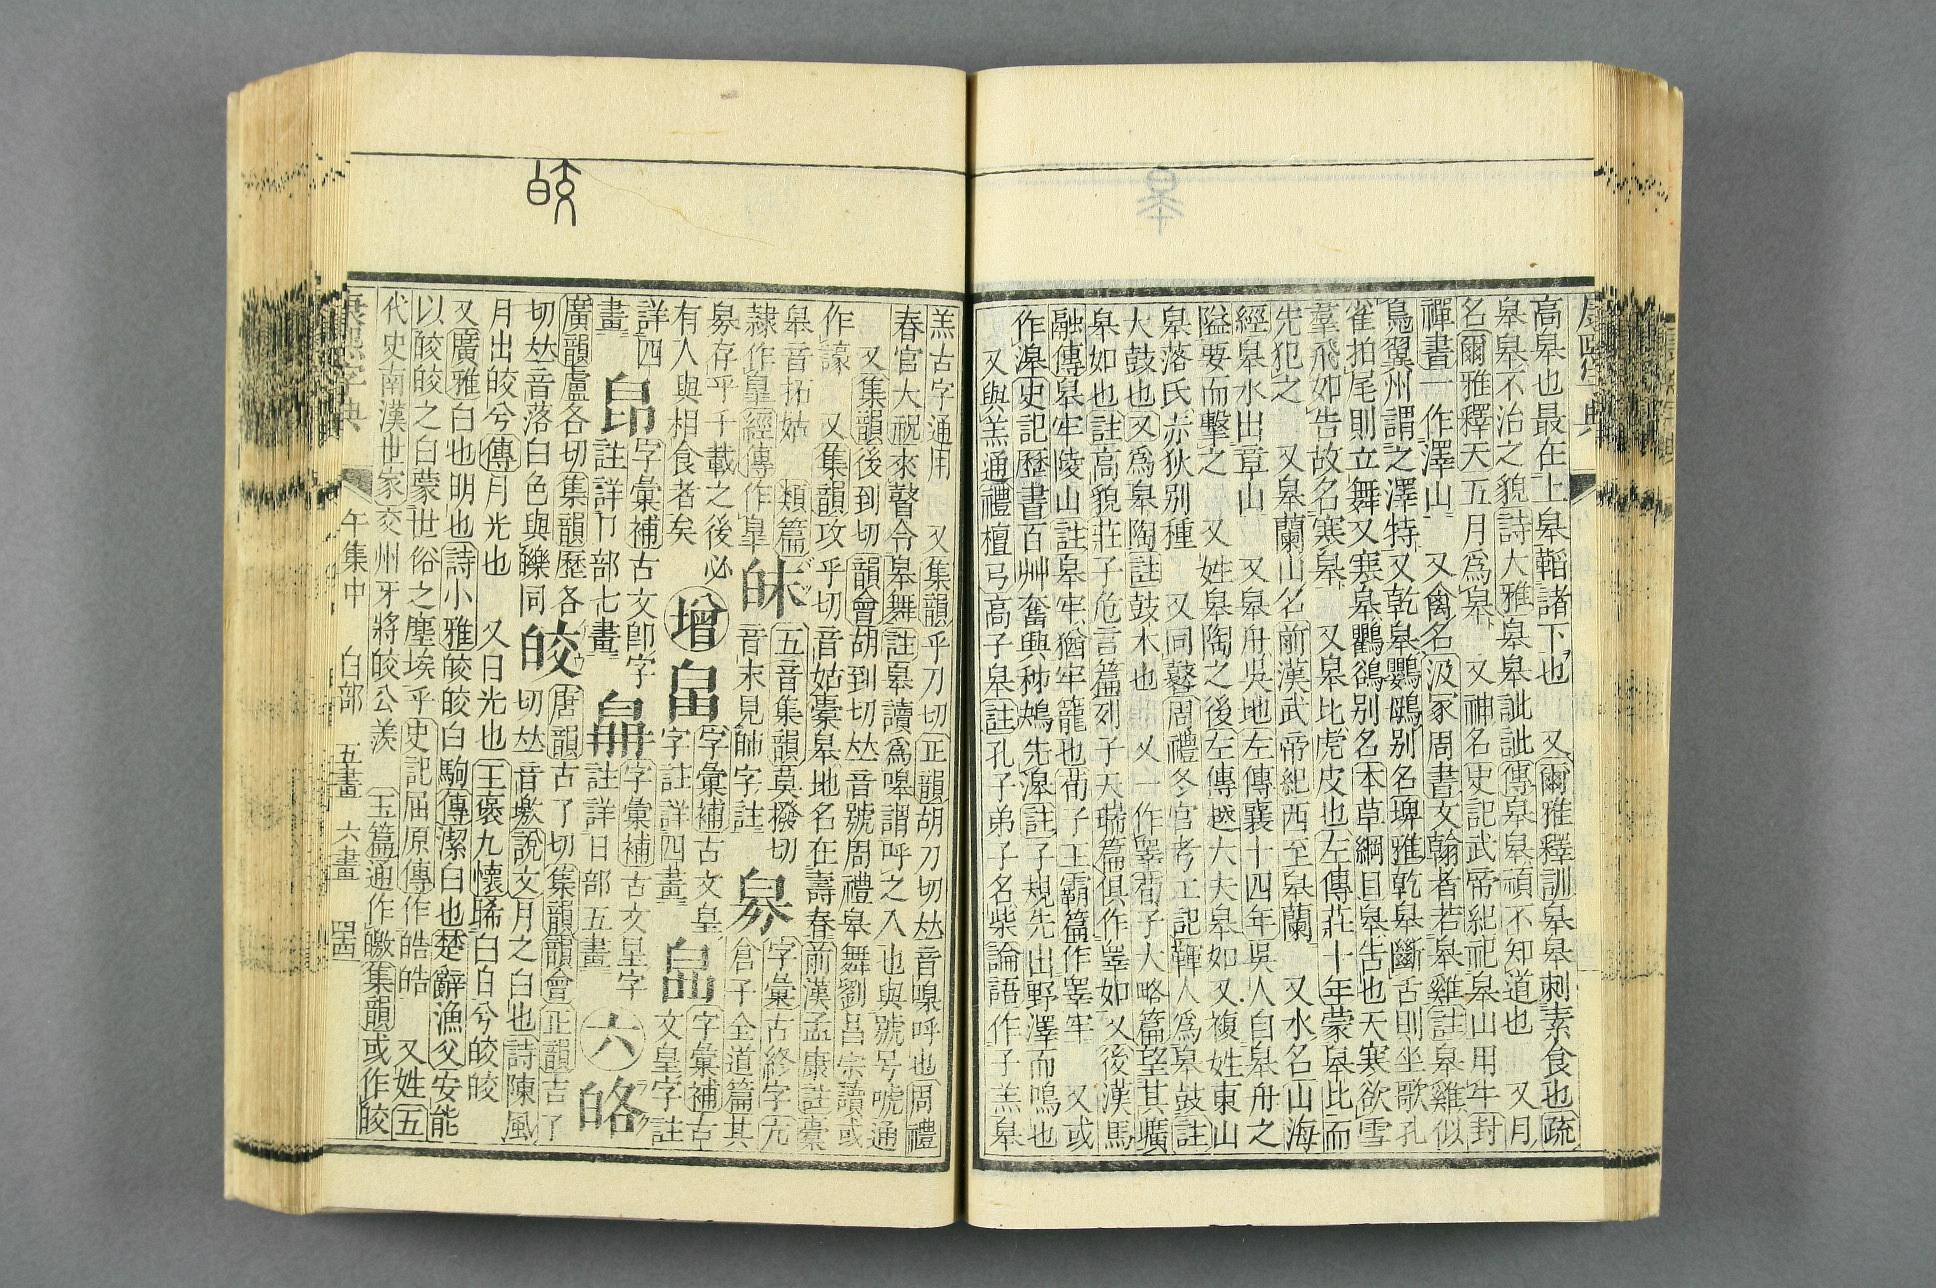 高皋也最在上皋韜諸下也 又爾雅釋訓皋皋刺素食也疏
皋皋不治之貌詩大雅皋皋訿訿傳皋皋頑不知道也 又月
名爾雅釋天五月爲皋 又神名史記武帝紀祀皋山用牛封
禪書一作澤山 又禽名汲冢周書文翰者若皋雞註皋雞似
鳧翼州謂之澤特又乾皋鸚鵡别名埤雅乾皋斷舌則坐歌孔
雀拍尾則立舞又寒皋鸜鵒别名本草綱目皋告也天寒欲雪
羣飛如告故名寒皋 又皋比虎皮也左傳莊十年蒙皋比而
先犯之 又皋蘭山名前漢武帝紀西至皋蘭 又水名山海
經皋水出章山 又皋舟吳地左傳襄十四年吳人自皋舟之
隘要而擊之 又姓皋陶之後左傳越大夫皋如又複姓東山
皋落氏赤狄别種 又同鼛周禮冬官考工記韗人爲皋鼓註
大鼓也又爲皋陶註鼓木也 又一作睪荀子大略篇望其壙
皋如也註高貌莊子危言篇列子天瑞篇俱作睪如又後漢馬
融傳皋牢陵山註皋牢猶牢籠也荀子王霸篇作睪牢 又或
作滜史記歷書百艸奮興秭鳺先滜註子規先出野澤而鳴也
又與羔通禮檀弓高子皋註孔子弟子名柴論語作子羔皋
皋
羔古字通用 又集韻乎刀切正韻胡刀切𠀤音嗥呼也周禮
春官大祝來瞽令皋舞註皋讀爲嘷謂呼之入也與號号唬通
又集韻後到切韻會胡到切𠀤音號周禮皋舞劉昌宗讀或
作譹 又集韻攻乎切音姑橐皋地名在壽春前漢孟康註橐
皋音拓姑 類篇
隷作皐經傳作皋 㿟 五音集韻莫撥切
音末見師字註
臱 字彙古終字亢
倉子全道篇其
臱存乎千載之後必
有人與相食者矣
增
字彙補古文皇
字註詳四畫
字彙補古
文皇字註
詳四
畫
𣅈 字彙補古文卽字
註詳卩部七畫
字彙補古文星字
註詳日部五畫
六
㿭
廣韻盧各切集韻歷各
切𠀤音落白色與皪同
皎 唐韻古了切集韻韻會正韻吉了
切𠀤音璬說文月之白也詩陳風
月出皎兮傳月光也 又日光也王褒九懷晞白日兮皎皎
又廣雅白也明也詩小雅皎皎白駒傳潔白也楚辭漁父安能
以皎皎之白蒙世俗之塵埃乎史記屈原傳作皓皓 又姓五
代史南漢世家交州牙將皎公羨 玉篇通作皦集韻或作皎
康熙字典 午集中 白部 五畫 六畫
皎